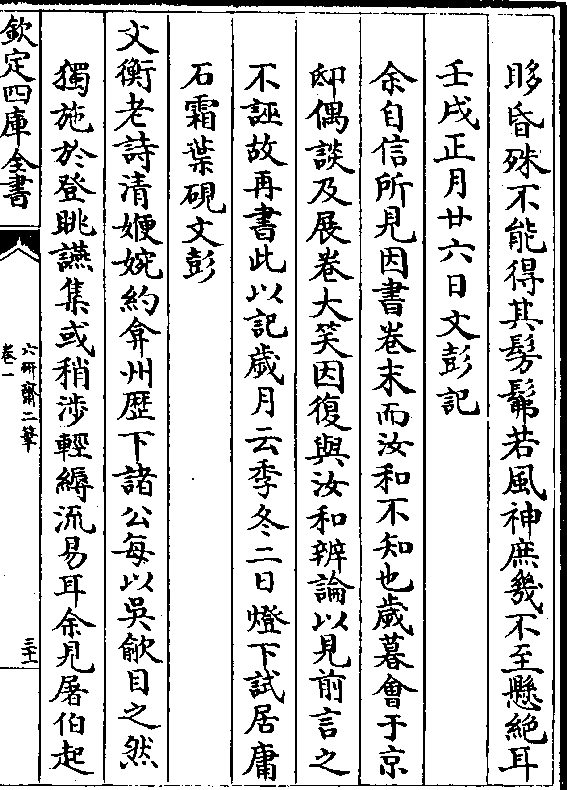 眵昏殊不能得其髣髴若風神庶幾不至懸絶耳
壬戌正月廿六日文彭記
余自信所見因書卷末而汝和不知也歲暮會于京
邸偶談及展卷大笑因復與汝和辨論以見前言之
不誣故再書此以記歲月云季冬二日燈下試居庸
石霜葉硯文彭
文衡老詩清婉㛹約弇州歷下諸公每以吳歈目之然
獨施於登眺讌集或稍涉輕縟流易耳余見屠伯起
欽定四庫全書
六研齋二筆
卷一
三十